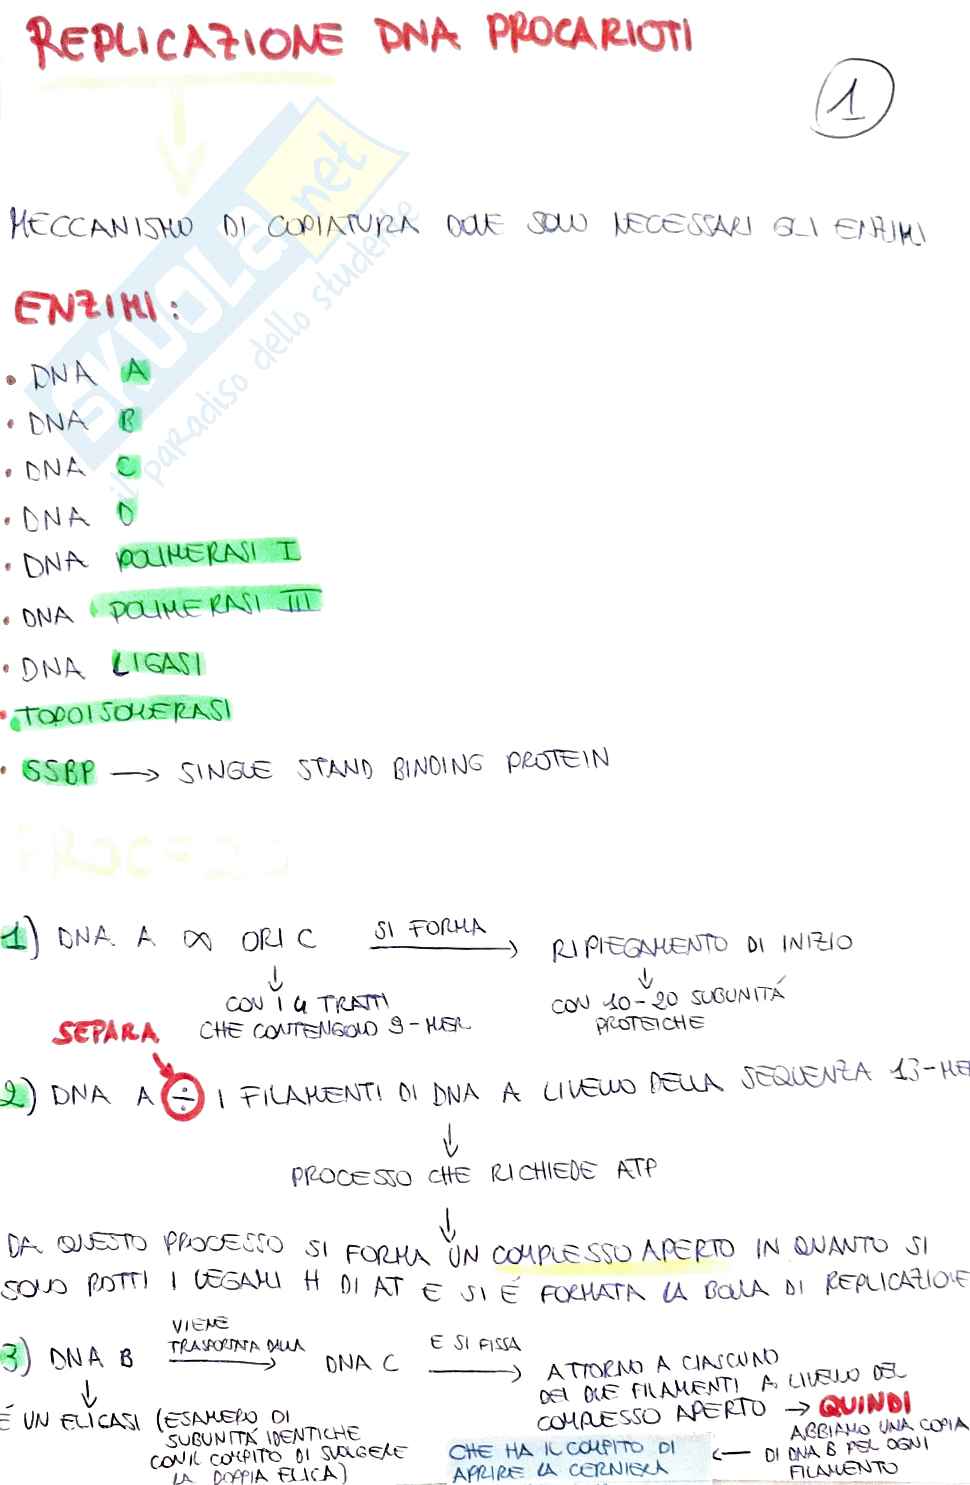 REPLICAZIONE DNA PROCARIOTI
1
MECCANISMO DI COPIATURA DOVE SONO NECESSARI GLI ENZIMI
ENZIMI:
• DNA A
• DNA B
• DNA C
• DNA D
• DNA POLIMERASI I
• DNA POLIMERASI III
• DNA LIGASI
• TOPOISOMERASI
• SSBP → SINGLE STAND BINDING PROTEIN
PROCESSO
1) DNA A ∞ ORI C SI FORMA → RIPIEGAMENTO DI INIZIO
↓ CON I 4 TRATTI
CHE CONTENGONO 9-MER
↓ CON 10-20 SUBUNITÁ
PROTEICHE
SEPARA
2) DNA A ÷ I FILAMENTI DI DNA A LIVELLO DELLA SEQUENZA 13-ME
↓
PROCESSO CHE RICHIEDE ATP
↓
DA QUESTO PROCESSO SI FORMA UN COMPLESSO APERTO IN QUANTO SI
SONO ROTTI I LEGAMI H DI AT E SI É FORMATA LA BOLLA DI REPLICAZIONE
3) DNA B VIENE
TRASPORTATA DALLA → DNA C E SI FISSA → ATTORNO A CIASCUNO
DEI DUE FILAMENTI A LIVELLO DEL
COMPLESSO APERTO → QUINDI
ABBIAMO UNA COPIA
DI DNA B PER OGNI
FILAMENTO
← CHE HA IL COMPITO DI
APRIRE LA CERNIERA
↓
É UN ELICASI (ESAMERO DI
SUBUNITÀ IDENTICHE
CON IL COMPITO DI SVOLGERE
LA DOPPIA ELICA)
SKUOLA.net
il paradiso dello studente